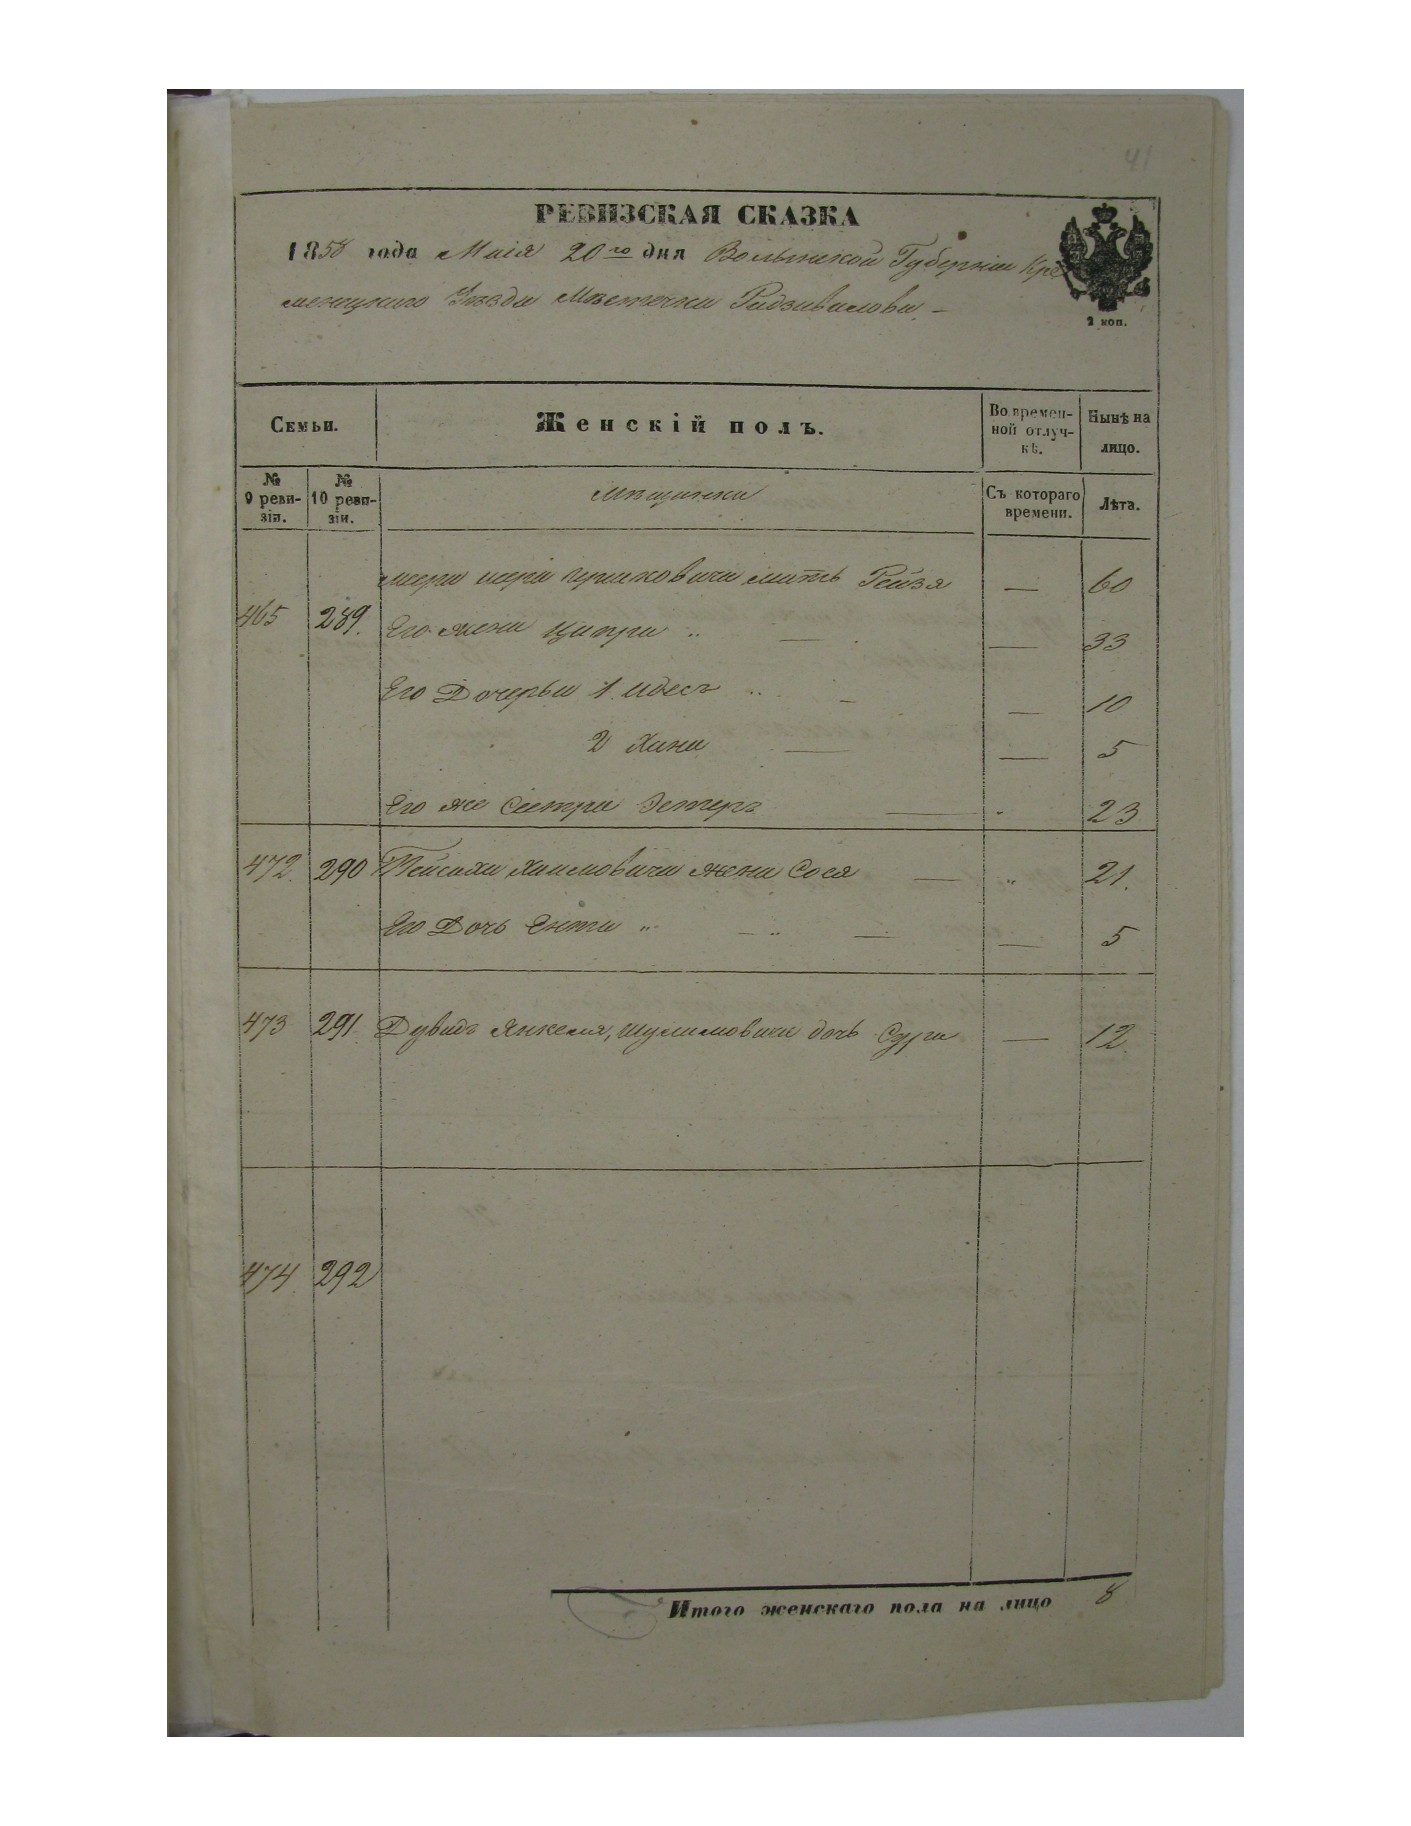 41
РЕВИЗСКАЯ СКАЗКА
1858 года Маія 20го дня Волынской Губерніи Кре
менецкаго Уѣзда Мѣстечка Радзивилова
2 коп.
Семьи.
Женскій полъ.
Во времен-
ной отлуч-
кѣ.
Нынѣ на
лицо.
№
9 реви-
зіи.
№
10 реви-
зіи.
Мѣщанки
Съ котораго
времени.
Лѣта.
Гершковича мать Рейзя — 60
465 289. Его жена Ципра — 33
Его Дочерьи 1. Идесъ — 10
2 Хана — 5
Его же Сестра Эстеръ — 23
472. 290 Пейсаха Хаимовича жена Сося — 21.
Его Дочь Ента — 5
473 291. Дувидъ Янкеля, Шулимовича дочь Сура — 12.
474. 292
Итого женскаго пола на лицо 8